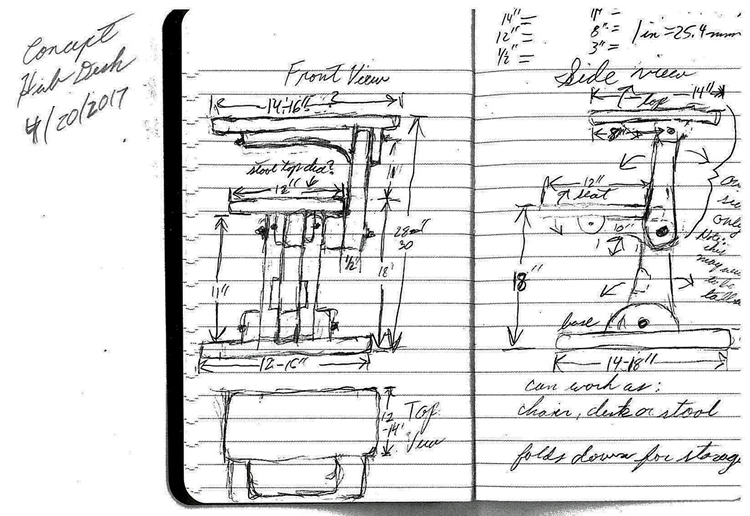 Concept
Hub Desk
4/20/2017
Front View
14-16" ?
stool top dia?
12"
11"
28 or
30"
18"
1/2"
11"
12-16"
12
-14"
Top
View
14" =
12" =
1/2" =
1" =
8" =
3" =
1 in = 25.4 mm
Side view
14"
Top
8"
12"
or seat
10"
18"
only
Note:
this
may
to be
base
14-18"
can work as:
chair, desk or stool
folds down for storage